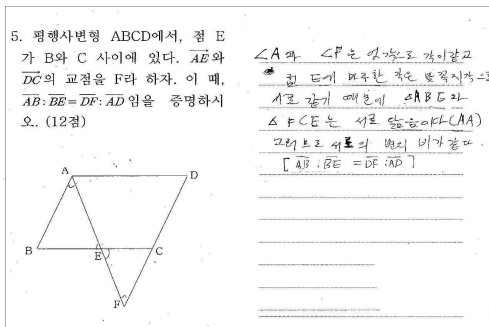 5. 평행사변형 ABCD에서, 점 E
가 B와 C 사이에 있다. AE와
DC의 교점을 F라 하자. 이 때,
AB:BE=DF:AD 임을 증명하시
오. (12점)
A
D
B
E
C
F
∠A과 ∠F은 엇각으로 각이같고
점 E에 마주한 각은 맞꼭지각으로
서로 같기 때문에 △ABE와
△FCE는 서로 닮음이다(AA)
그러므로 서로의 변의 비가같다.
[AB:BE = DF:AD]